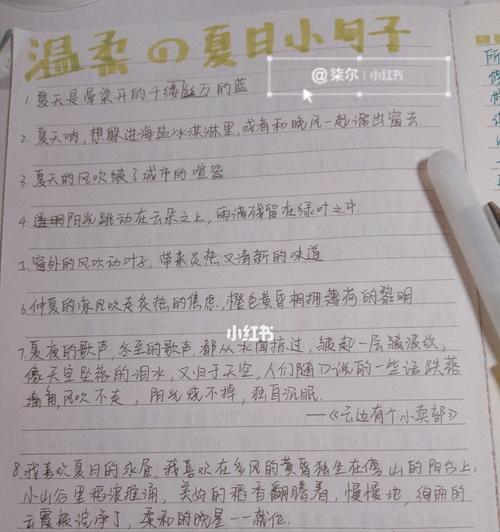 温柔の夏日小句子
@柒尔 小红书
1.夏天是晕染开的千缕丝万的蓝
2.夏天呐,想躲进海盐冰淇淋里,或者和晚风一起溜出窗去
3.夏天的风吹绿了城市的喧嚣
4.透明阳光跳动在云朵之上,雨滴残留在绿叶之中.
5.窗外的风吹动叶子,带来炎热又清新的味道
6.仲夏的凉风吹走炙热的焦虑,橙色黄昏相拥薄荷的黎明
小红书
7.夏夜的歌声,冬至的歌声.都从水面掠过,皱起一层皱波纹,
像天空坠落的泪水,又归于天空,人们随口说的一些话跌落
墙角,风吹不走,阳光烧不掉,独自沉眠.
——《云边有个小卖部》
8.我喜欢夏日的永昼,我喜欢在多风的黄昏独坐在傍山的阳台上,
小山谷里稻浪推涌,美好的稻香翻腾着,慢慢地,绚丽的
云霞被浣净了,柔和的晚星一一就位.
所